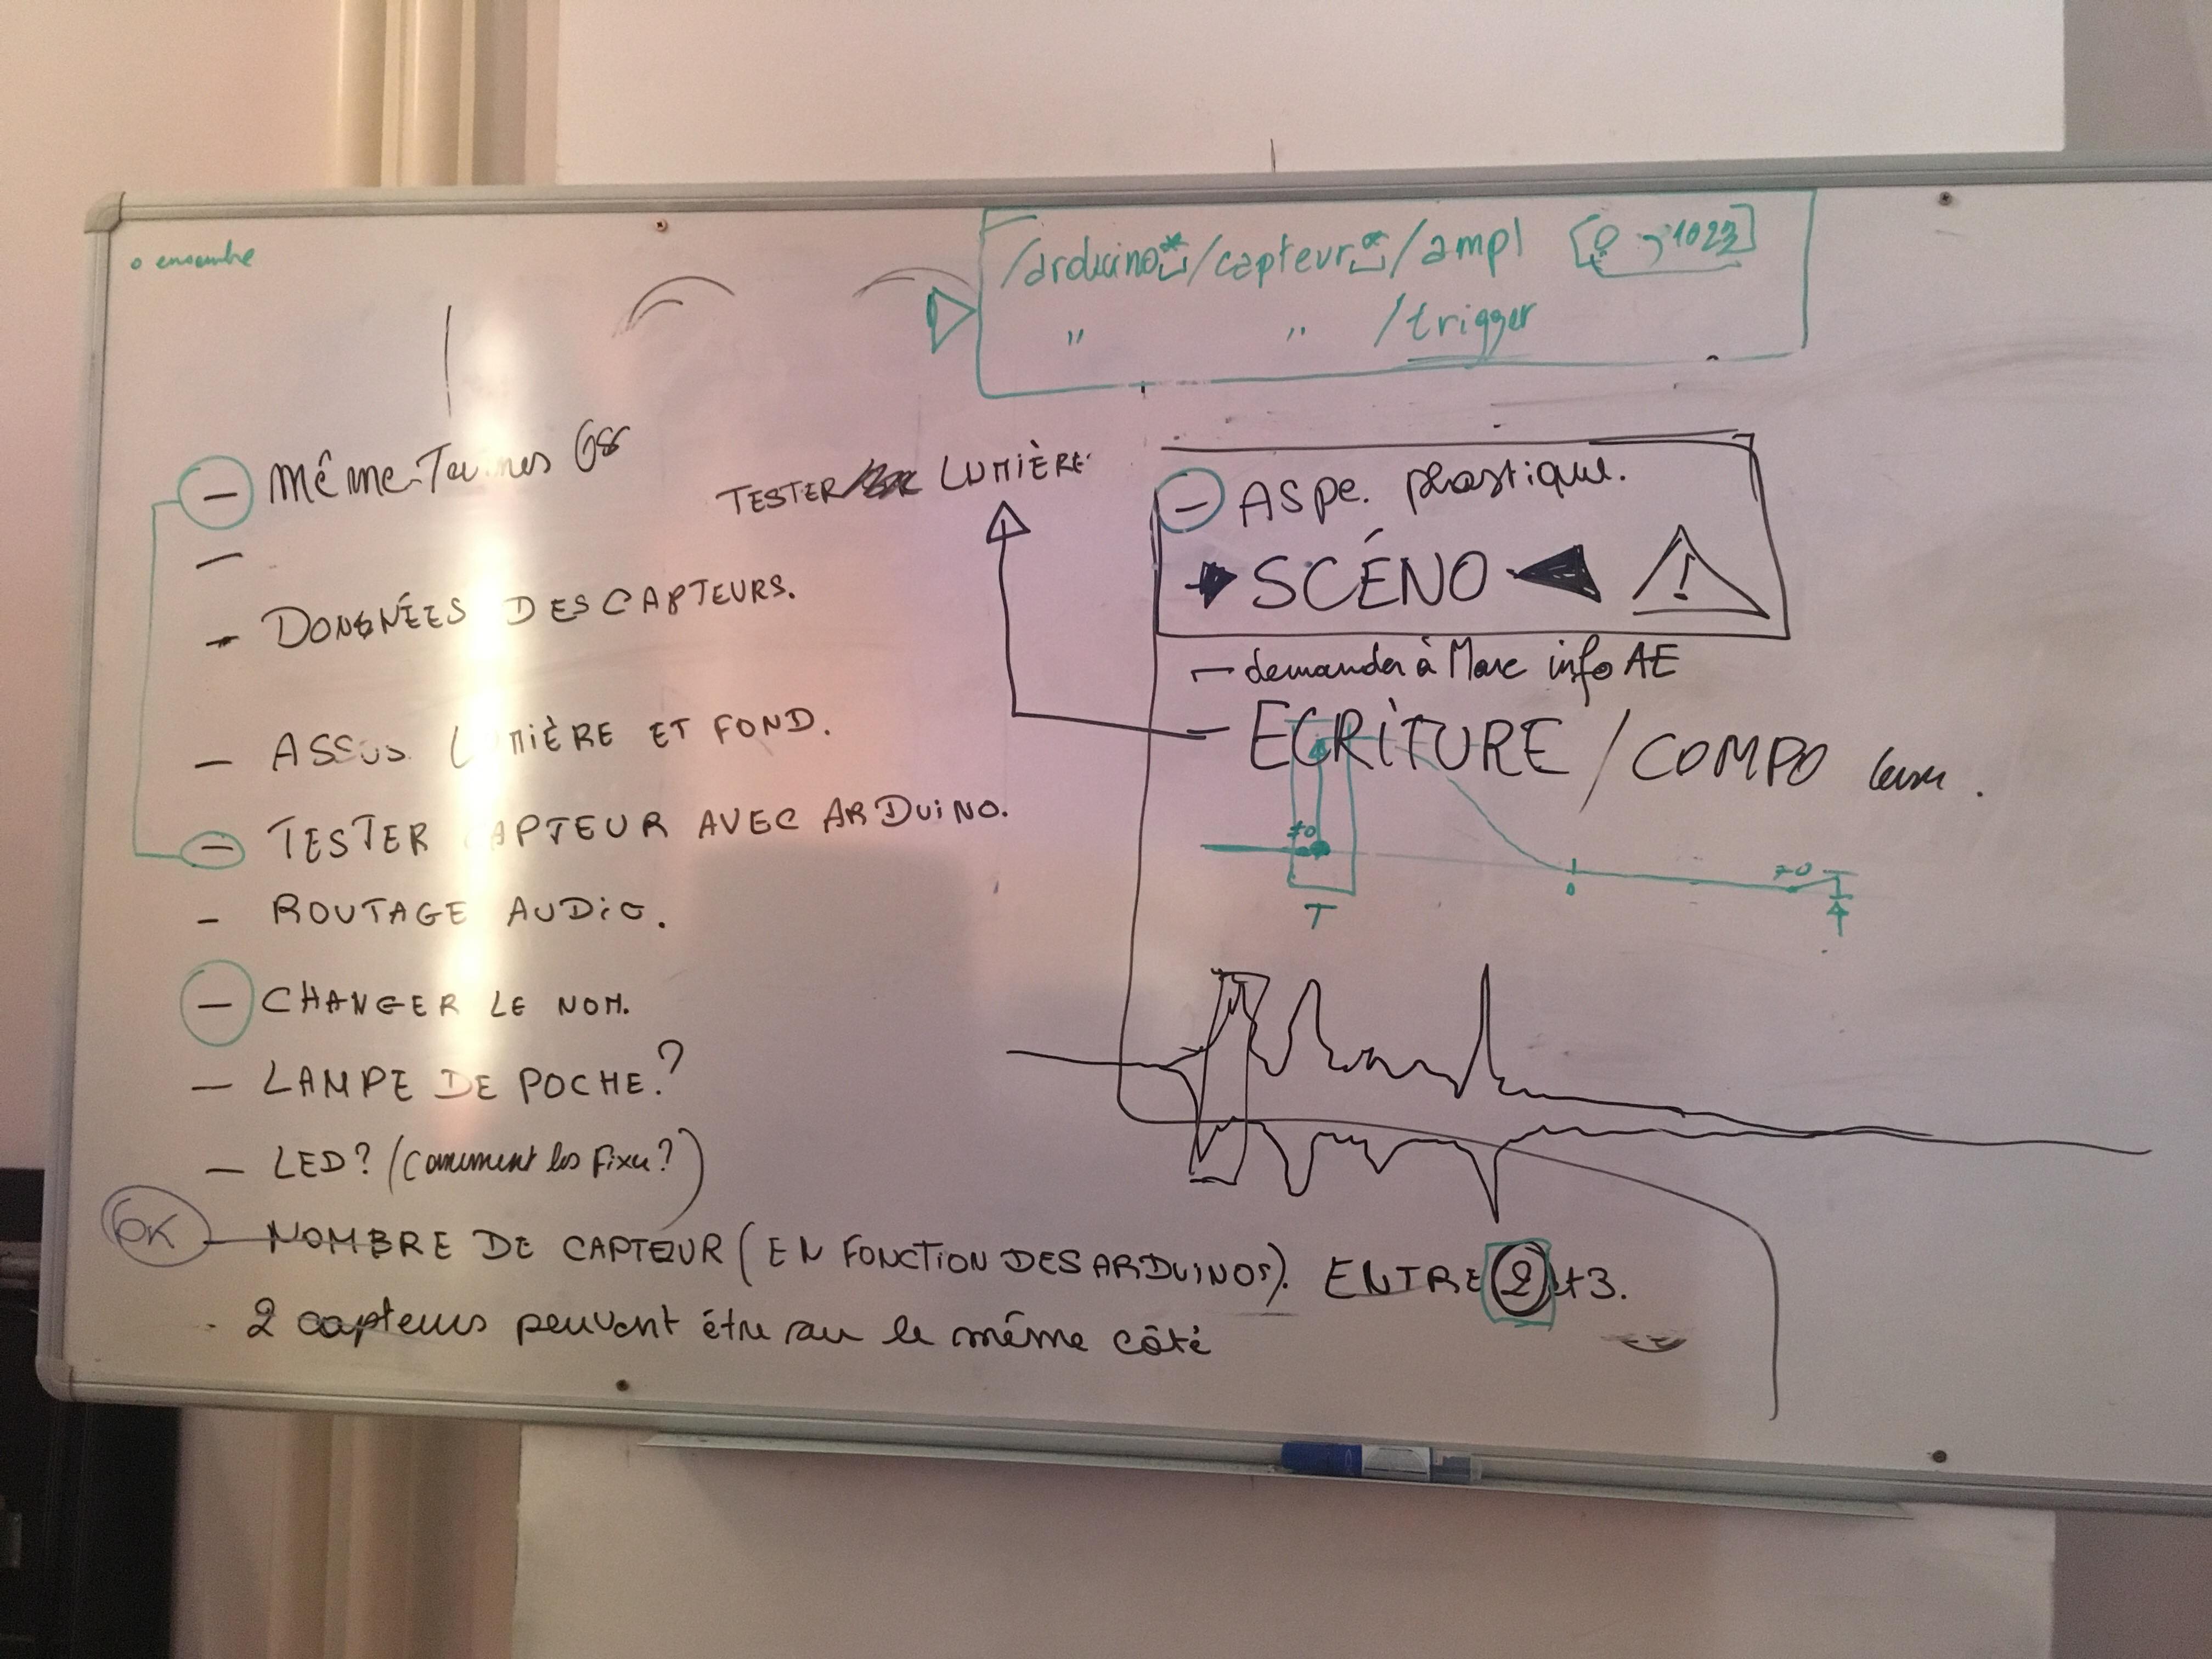 o ensemble
/arduino*/capteur*/ampl [0 → 1023]
" " /trigger
- Même
TESTER LUMIÈRE
-
- DONNÉES DES CAPTEURS.
- LUMIÈRE ET FOND.
- TESTER CAPTEUR AVEC ARDUINO.
- ROUTAGE AUDIO.
- CHANGER LE NOM.
- LAMPE DE POCHE?
- LED? (Comment les fixer?)
OK - NOMBRE DE CAPTEUR (EN FONCTION DES ARDUINOS). ENTRE 2 et 3.
- 2 capteurs peuvent être sur le même côté
- Aspe. plastique.
SCÉNO !
- demander à Marc info AE
- ECRITURE / COMPO
≠0
T
0
≠0